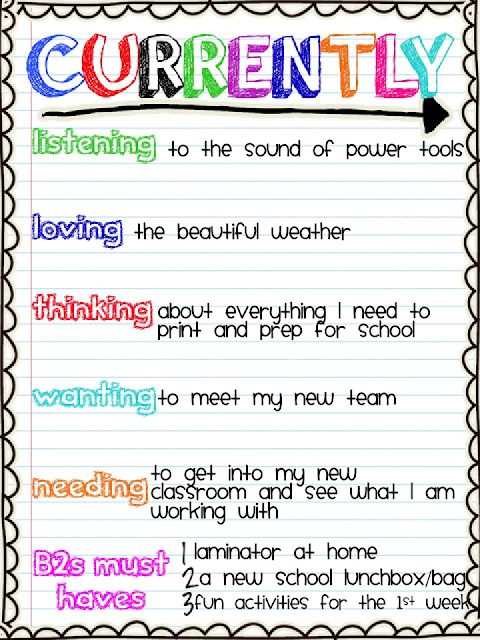 CURRENTLY
listening to the sound of power tools
loving the beautiful weather
thinking about everything I need to
print and prep for school
wanting to meet my new team
needing to get into my new
classroom and see what I am
working with
B2s must haves
1 laminator at home
2 a new school lunchbox/bag
3 fun activities for the 1st week